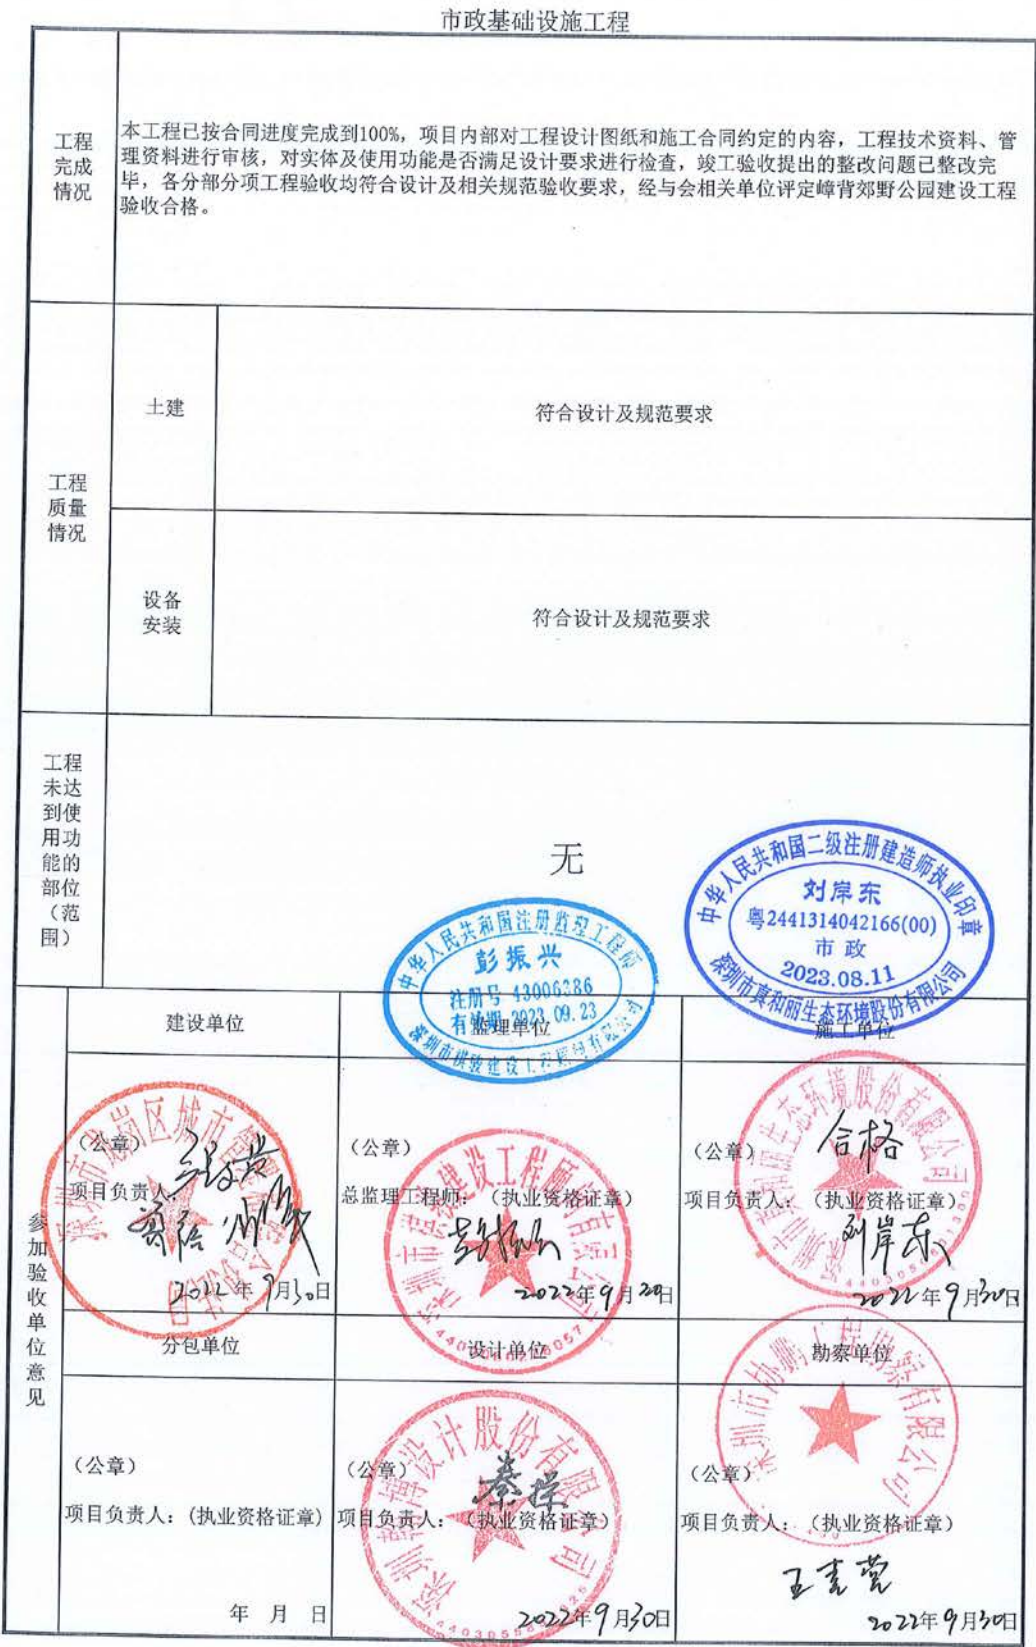 市政基础设施工程
工程
完成
情况
本工程已按合同进度完成到100%，项目内部对工程设计图纸和施工合同约定的内容，工程技术资料、管
理资料进行审核，对实体及使用功能是否满足设计要求进行检查，竣工验收提出的整改问题已整改完
毕，各分部分项工程验收均符合设计及相关规范验收要求，经与会相关单位评定嶂背郊野公园建设工程
验收合格。
工程
质量
情况
土建
符合设计及规范要求
设备
安装
符合设计及规范要求
工程
未达
到使
用功
能的
部位
（范
围）
无
中华人民共和国注册监理工程师
彭振兴
注册号 43006386
有效期 2023.09.23
中华人民共和国二级注册建造师执业印章
刘岸东
粤2441314042166(00)
市政
2023.08.11
深圳市真和丽生态环境股份有限公司
参加验收单位意见
建设单位
监理单位
施工单位
（公章）
项目负责人：
2022年9月30日
（公章）
总监理工程师：（执业资格证章）
彭振兴
2022年9月30日
（公章）
合格
项目负责人：（执业资格证章）
刘岸东
2022年9月30日
分包单位
设计单位
勘察单位
（公章）
项目负责人：（执业资格证章）
年 月 日
（公章）
项目负责人：（执业资格证章）
2022年9月30日
深圳市协鹏工程勘察有限公司
（公章）
项目负责人：（执业资格证章）
2022年9月30日